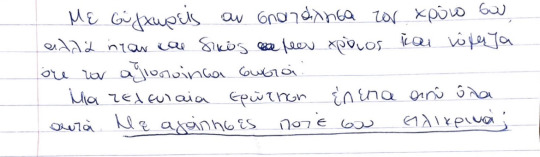 Με συγχωρείς αν σπατάλησα τον χρόνο σου,
αλλά ήταν και δικός μου χρόνος και νόμιζα
ότι τον αξιοποίησα σωστά.
Μια τελευταία ερώτηση έπειτα από όλα
αυτά. Με αγάπησες ποτέ σου ειλικρινά;